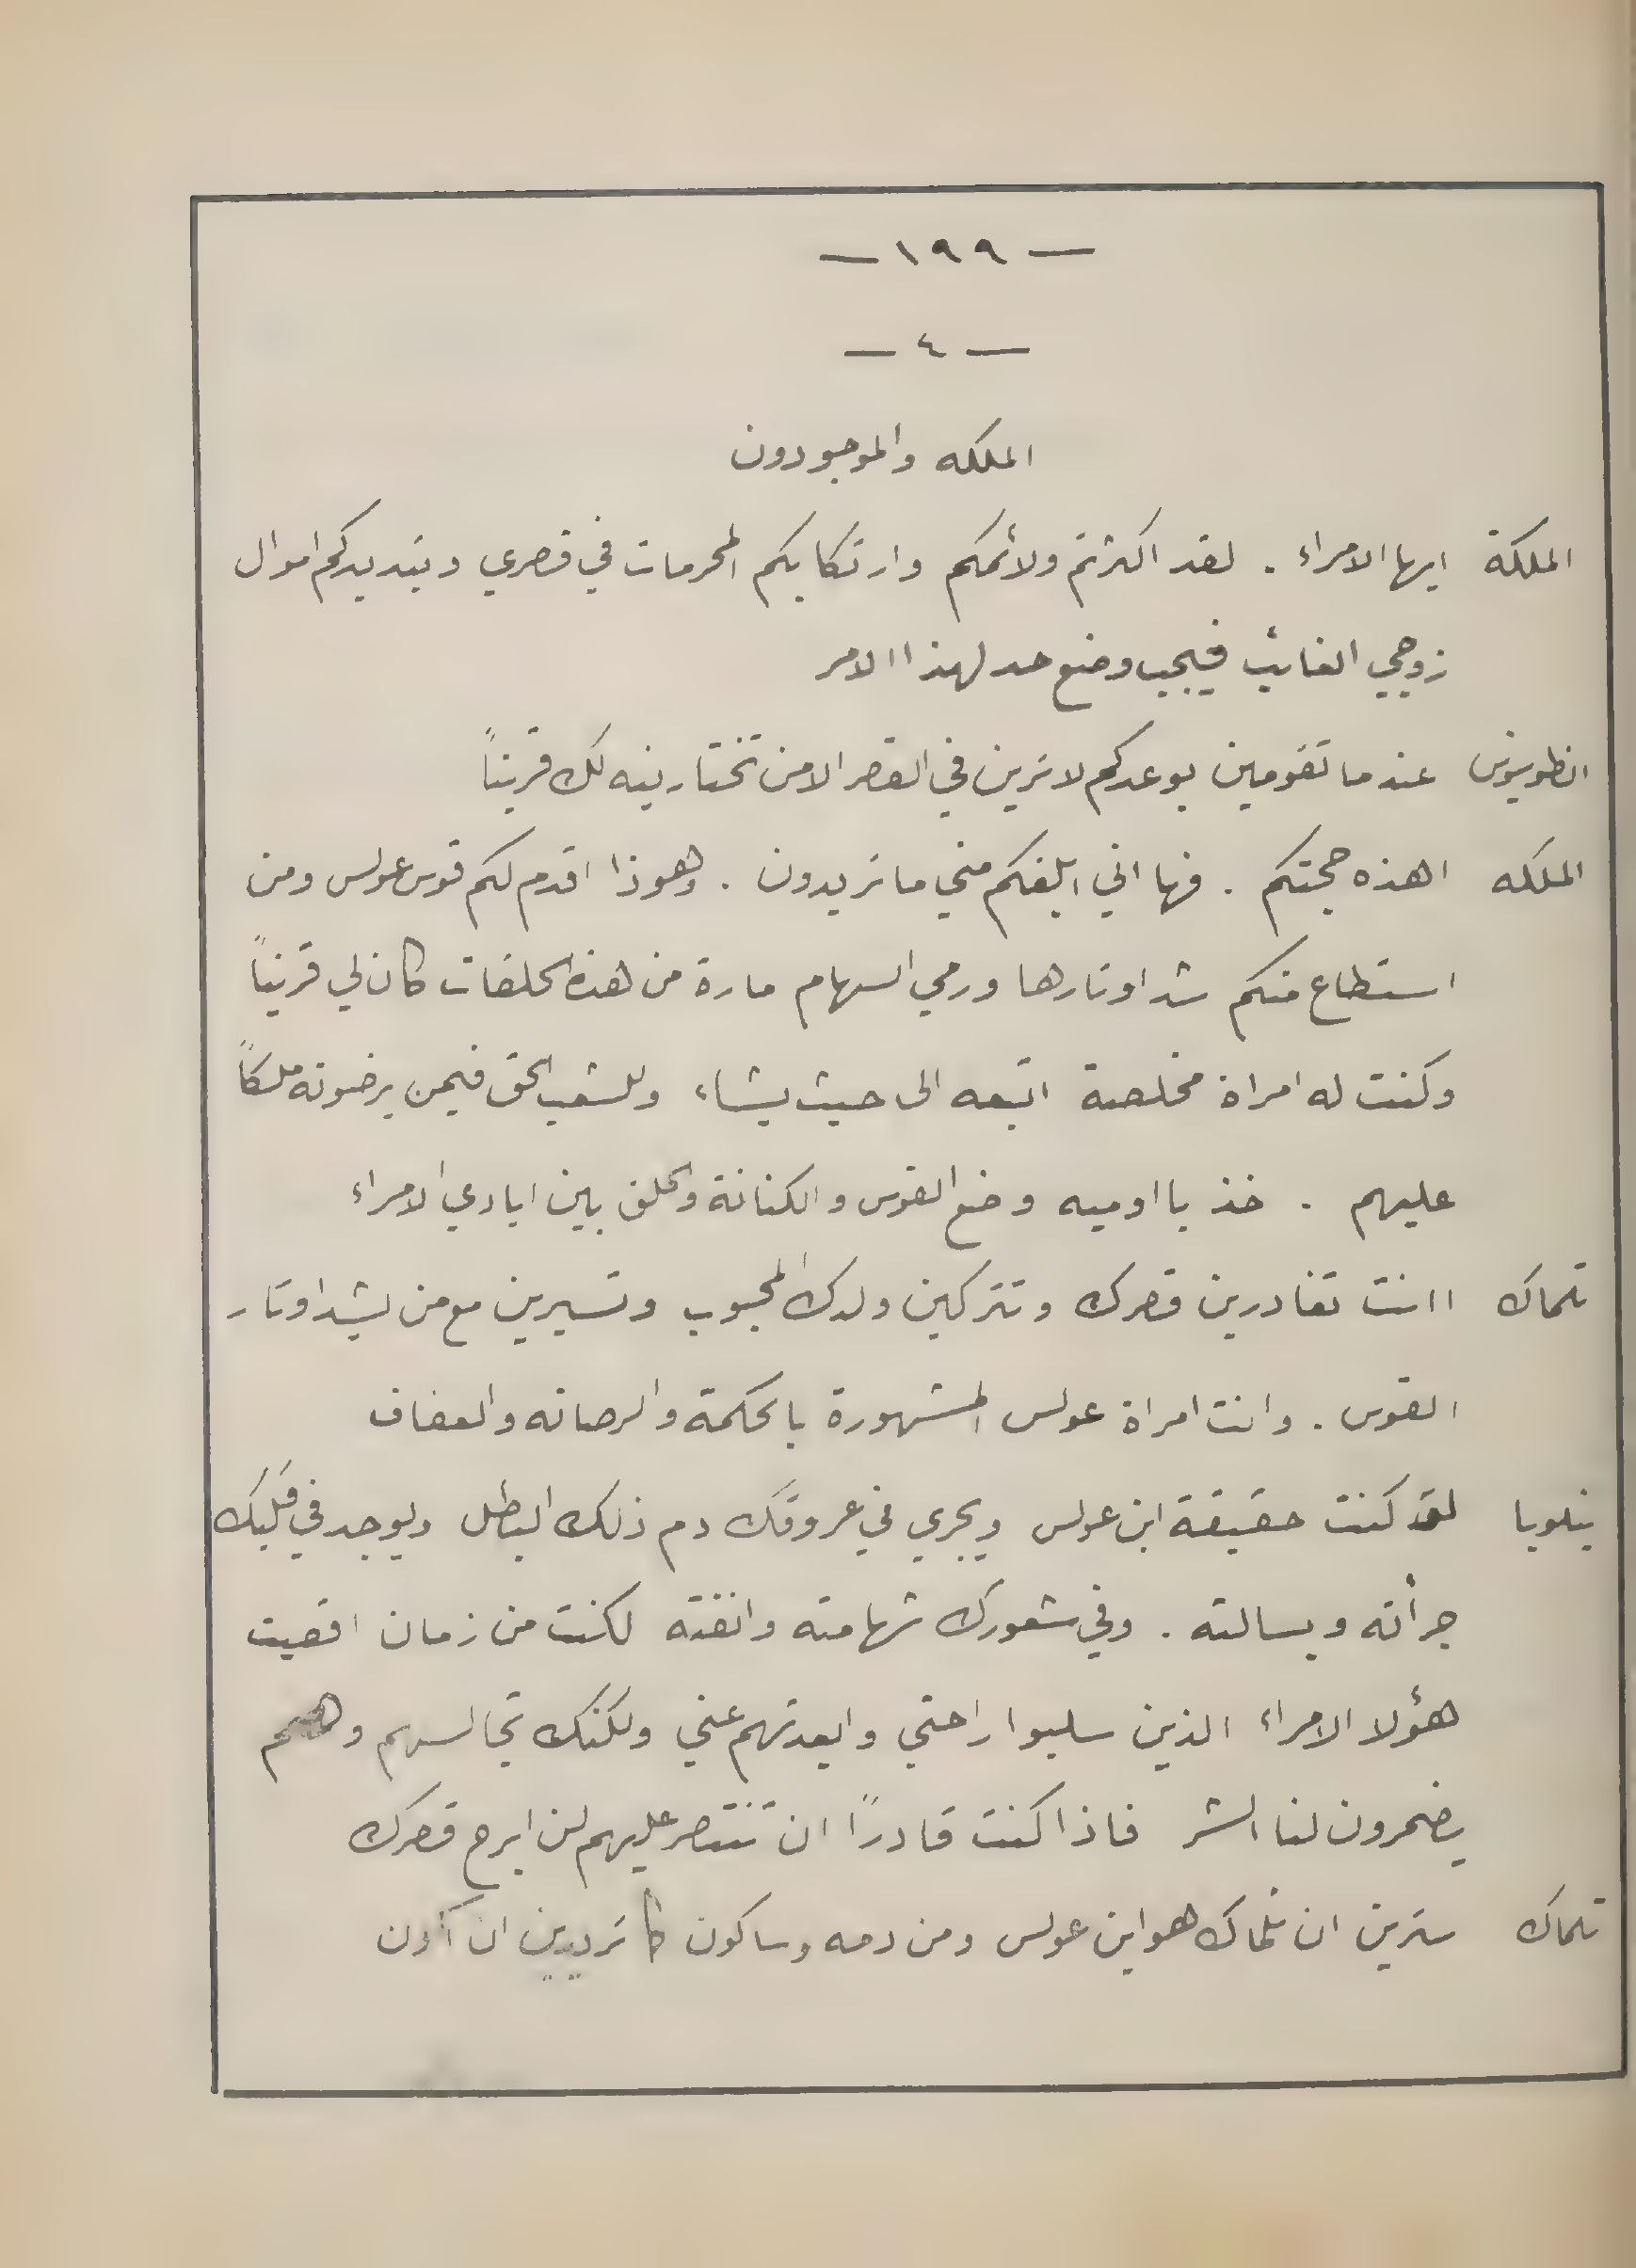 — ١٩٩ —
— ٤ —
الملكه والموجودون
الملكة ايها الامراء . لقد اكثرتم ولائمكم وارتكابكم المحرمات في قصري وتبديدكم اموال
زوجي الغائب فيجب وضع حد لهذا الامر
انطونيوس عندما تقومين بوعدكم لا ترين في القصر الا من تختارينه لك قريناً
الملكه اهذه حجتكم . فها اني ابلغكم مني ما تريدون . وهوذا اقدم لكم قوس عولس ومن
استطاع منكم شد اوتارها ورمي السهام مارة من هذه الحلقات كان لي قريناً
وكنت له امراة مخلصة اتبعه الى حيث يشاء وللشعب الحق فيمن يرضونه ملكاً
عليهم . خذ يا اوميه وضع القوس والكنانة والحلق بين ايادي الامراء
تلماك اانت تغادرين قصرك وتتركين ولدك المحبوب وتسيرين مع من يشد اوتار
القوس . وانت امراة عولس المشهورة بالحكمة والرصانه والعفاف
بنلوبا لو كنت حقيقة ابن عولس ويجري في عروقك دم ذلك البطل ويوجد في قلبك
جرأته وبسالته . وفي شعورك شهامته وانفته لكنت من زمان اقصيت
هؤلا الامراء الذين سلبوا راحتي وابعدتهم عني ولكنك تجالسهم وهم
يضمرون لنا الشر فاذا كنت قادرًا ان تنتصر عليهم لن ابرح قصرك
تلماك سترين ان تلماك هو ابن عولس ومن دمه وساكون كما تريدين ان أكون